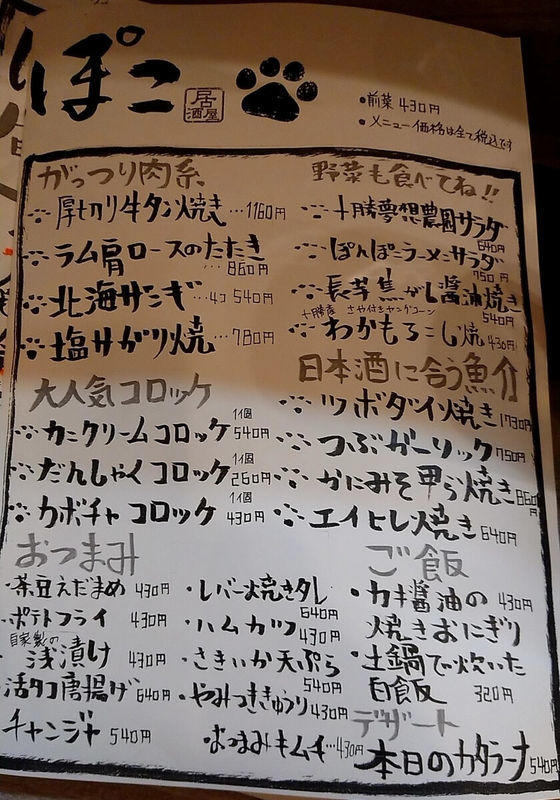 ぽこ
居酒屋
・前菜 430円
・メニュー価格は全て税込です
がっつり肉系
厚切り牛タン焼き…1160円
ラム肩ロースのたたき
…860円
北海ザンギ…4コ 540円
塩サガリ焼…780円
大人気コロッケ
カニクリームコロッケ 1個 540円
だんしゃくコロッケ 1個 260円
カボチャコロッケ 1個 430円
おつまみ
・茶豆えだまめ 430円
・ポテトフライ 430円
自家製の
浅漬け 430円
活タコ唐揚げ 640円
チャンジャ 540円
・レバー焼きタレ
640円
・ハムカツ 430円
・さきいか天ぷら
540円
・やみつききゅうり 430円
・おつまみキムチ…430円
野菜も食べてね!!
十勝夢想農園サラダ
640円
ぽんぽこラーメンサラダ
750円
長芋焦がし醤油焼き
540円
十勝産 さや付きヤングコーン
わかもろこし焼 430円
日本酒に合う魚介
ツボダイ焼き 1730円
つぶガーリック 750円
かにみそ甲ら焼き 860円
エイヒレ焼き 640円
ご飯
・カキ醤油の 430円
焼きおにぎり
・土鍋で炊いた
白飯 320円
デザート
本日のカタラーナ 540円